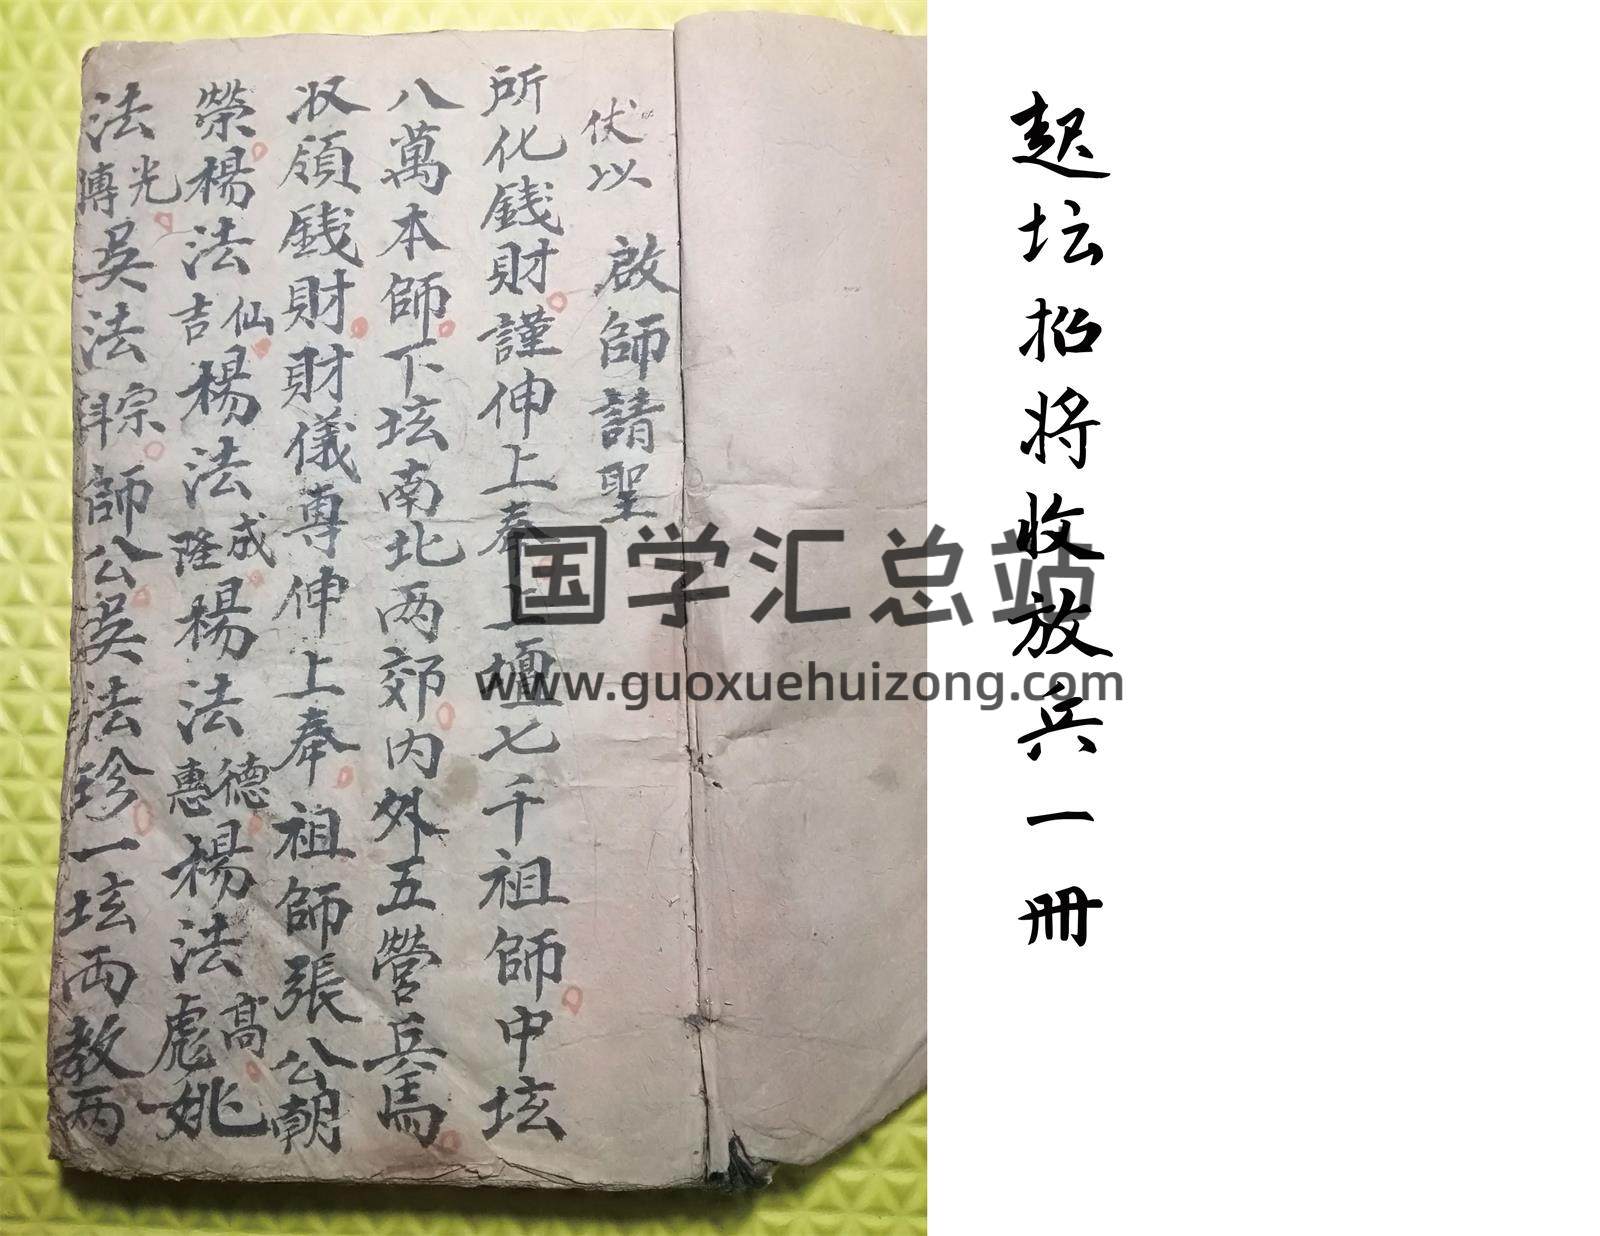 起坛招将收放兵一冊
伏以 啟師請聖
所化錢財謹伸上奉上壇七千祖師中坛
八萬本師下坛南北两郊内外五營兵馬
收領錢財財儀專伸上奉祖師張公朝
榮楊法仙吉楊法成隆楊法德惠楊法高彪姚
法光傳吳法宗科師公吳法珍一坛两教两
国学汇总站
www.guoxuehuizong.com